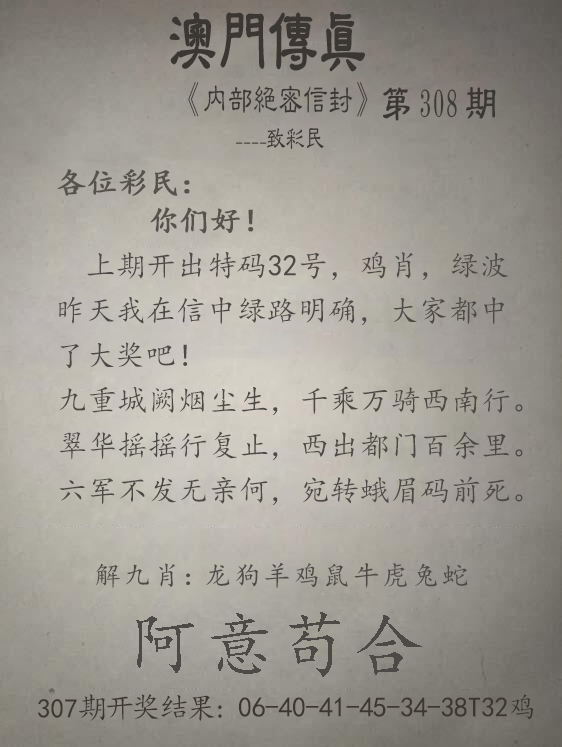 澳門傳眞
《内部絕密信封》第308期
----致彩民
各位彩民:
你们好!
上期开出特码32号，鸡肖，绿波
昨天我在信中绿路明确，大家都中
了大奖吧!
九重城阙烟尘生，千乘万骑西南行。
翠华摇摇行复止，西出都门百余里。
六军不发无亲何，宛转蛾眉码前死。
解九肖:龙狗羊鸡鼠牛虎兔蛇
阿意苟合
307期开奖结果: 06-40-41-45-34-38T32鸡